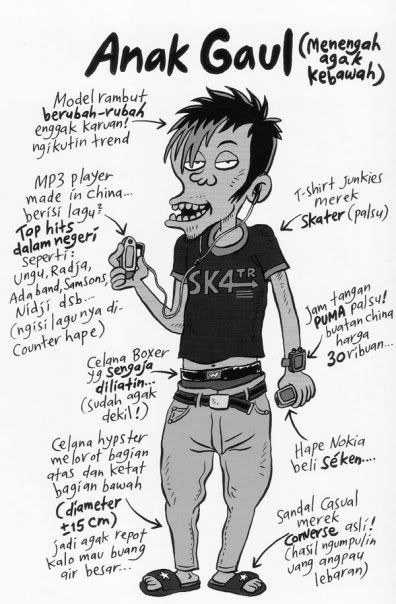 Anak Gaul
(Menengah
agak
kebawah)
Model rambut
berubah-rubah
enggak karuan!
ngikutin trend
MP3 player
made in China...
berisi lagu²
Top hits
dalam negeri
seperti:
Ungu, Radja,
Ada band, Samsons,
Nidji dsb...
(ngisi lagunya di-
Counter hape)
T-shirt Junkies
merek
Skater (palsu)
SK4TR
Jam tangan
PUMA palsu!
buatan china
harga
30 ribuan...
Celana Boxer
yg sengaja
diliatin...
(sudah agak
dekil!)
Hape Nokia
beli séken....
Celana hypster
melorot bagian
atas dan ketat
bagian bawah
(diameter
±15 cm)
jadi agak repot
kalo mau buang
air besar...
Sandal Casual
merek
Converse asli!
(hasil ngumpulin
uang angpau
lebaran)